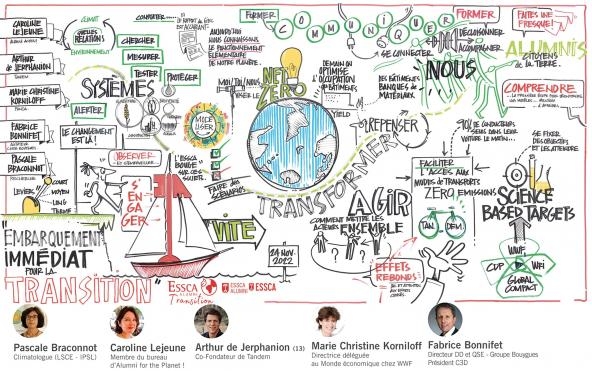 CAROLINE
LEJEUNE
ARTHUR
de JERPHANION
TANDEM
MARIE CHRISTINE
KORNILOFF
FABRICE
BONNIFET
PASCALE
BRACONNOT
LEVIERS
COURT
MOYEN
LONG
TERME
CLIMAT
QUELLES
RELATIONS
ENVIRONNEMENT
COMPATER...
CHERCHER
MESURER
TESTER
PROTÉGER
SYSTÈMES
ALERTER
LE CHANGEMENT
EST LÀ!
OBSERVER
S'ENGAGER
L'ESSCA
BOUGE
SUR CES
SUJETS.
FAIRE des
SCÉNARIOS
VITE
24 NOV.
2022
AUJOURD'HUI
NOUS CONNAISSONS
LE FONCTIONNEMENT
ÉLÉMENTAIRE
DE NOTRE PLANÈTE.
MOI/TOI/NOUS
NET
ZERO
FORMER
COMMUNIQUER
SE CONNECTER
DEMAIN ON
OPTIMISE
L'OCCUPATION
des BÂTIMENTS
LES BÂTIMENTS
BANQUES de
MATÉRIAUX.
NOUS
FORMER
DÉCLOISONNER
ACCOMPAGNER
FAITES UNE
FRESQUE!
ALUMNIS
CITOYENS
de la TERRE.
COMPRENDRE
REPENSER
TRANSFORMER
AGIR
COMMENT METTRE LES
ACTEURS ENSEMBLE
EFFETS
REBONDS
90% de CONDUCTEURS
SEULS DANS LEUR
VOITURE LE MATIN...
FACILITER
L'ACCÈS AUX
MODES DE TRANSPORTS
ZERO EMISSIONS
TAN
DEM
SE FIXER
DES OBJECTIFS
ET LES ATTEINDRE
SCIENCE
BASED TARGETS
WWF
CDP
WRI
GLOBAL
COMPACT
"EMBARQUEMENT
IMMÉDIAT
POUR LA
TRANSITION"
ESSCA
ALUMNI
Transition
ESSCA
ALUMNI
ESSCA
Pascale Braconnot
Climatologue (LSCE - IPSL)
Caroline Lejeune
Membre du bureau
d'Alumni for the Planet !
Arthur de Jerphanion (13)
Co-Fondateur de Tandem
Marie Christine Korniloff
Directrice déléguée
au Monde économique chez WWF
Fabrice Bonnifet
Directeur DD et QSE - Groupe Bouygues
Président C3D